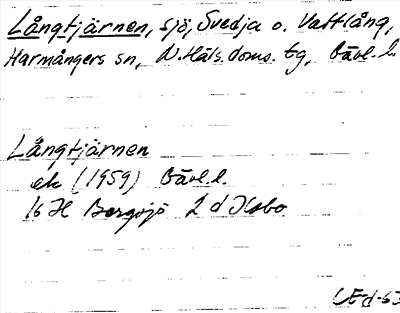 Långtjärnen, sjö, Svedja o. Vattlång,
Harmångers sn, N. Häls. doms. tg, Gävl. l.
Långtjärnen
ek (1959) Gävl. l.
16 H Bergsjö 2 d